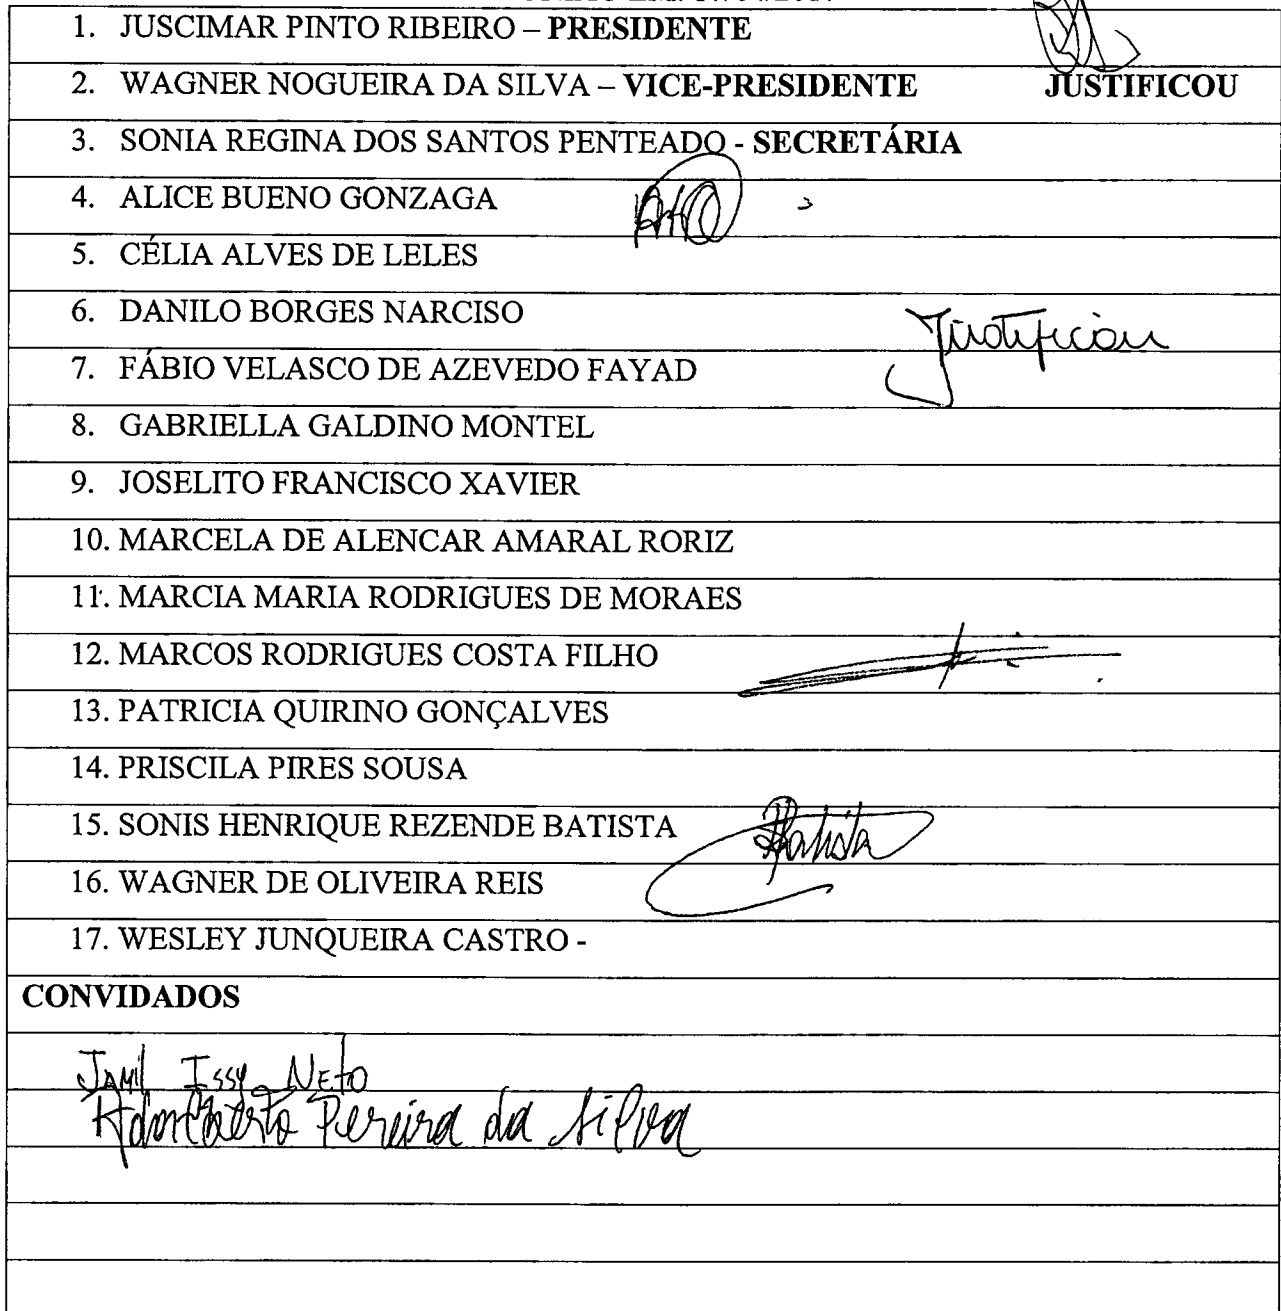 1. JUSCIMAR PINTO RIBEIRO – PRESIDENTE
2. WAGNER NOGUEIRA DA SILVA – VICE-PRESIDENTE JUSTIFICOU
3. SONIA REGINA DOS SANTOS PENTEADO - SECRETÁRIA
4. ALICE BUENO GONZAGA
5. CÉLIA ALVES DE LELES
6. DANILO BORGES NARCISO
Justificou
7. FÁBIO VELASCO DE AZEVEDO FAYAD
8. GABRIELLA GALDINO MONTEL
9. JOSELITO FRANCISCO XAVIER
10. MARCELA DE ALENCAR AMARAL RORIZ
11. MARCIA MARIA RODRIGUES DE MORAES
12. MARCOS RODRIGUES COSTA FILHO
13. PATRICIA QUIRINO GONÇALVES
14. PRISCILA PIRES SOUSA
15. SONIS HENRIQUE REZENDE BATISTA Batista
16. WAGNER DE OLIVEIRA REIS
17. WESLEY JUNQUEIRA CASTRO -
CONVIDADOS
JAMIL ISSY NETO
Pereira da Silva